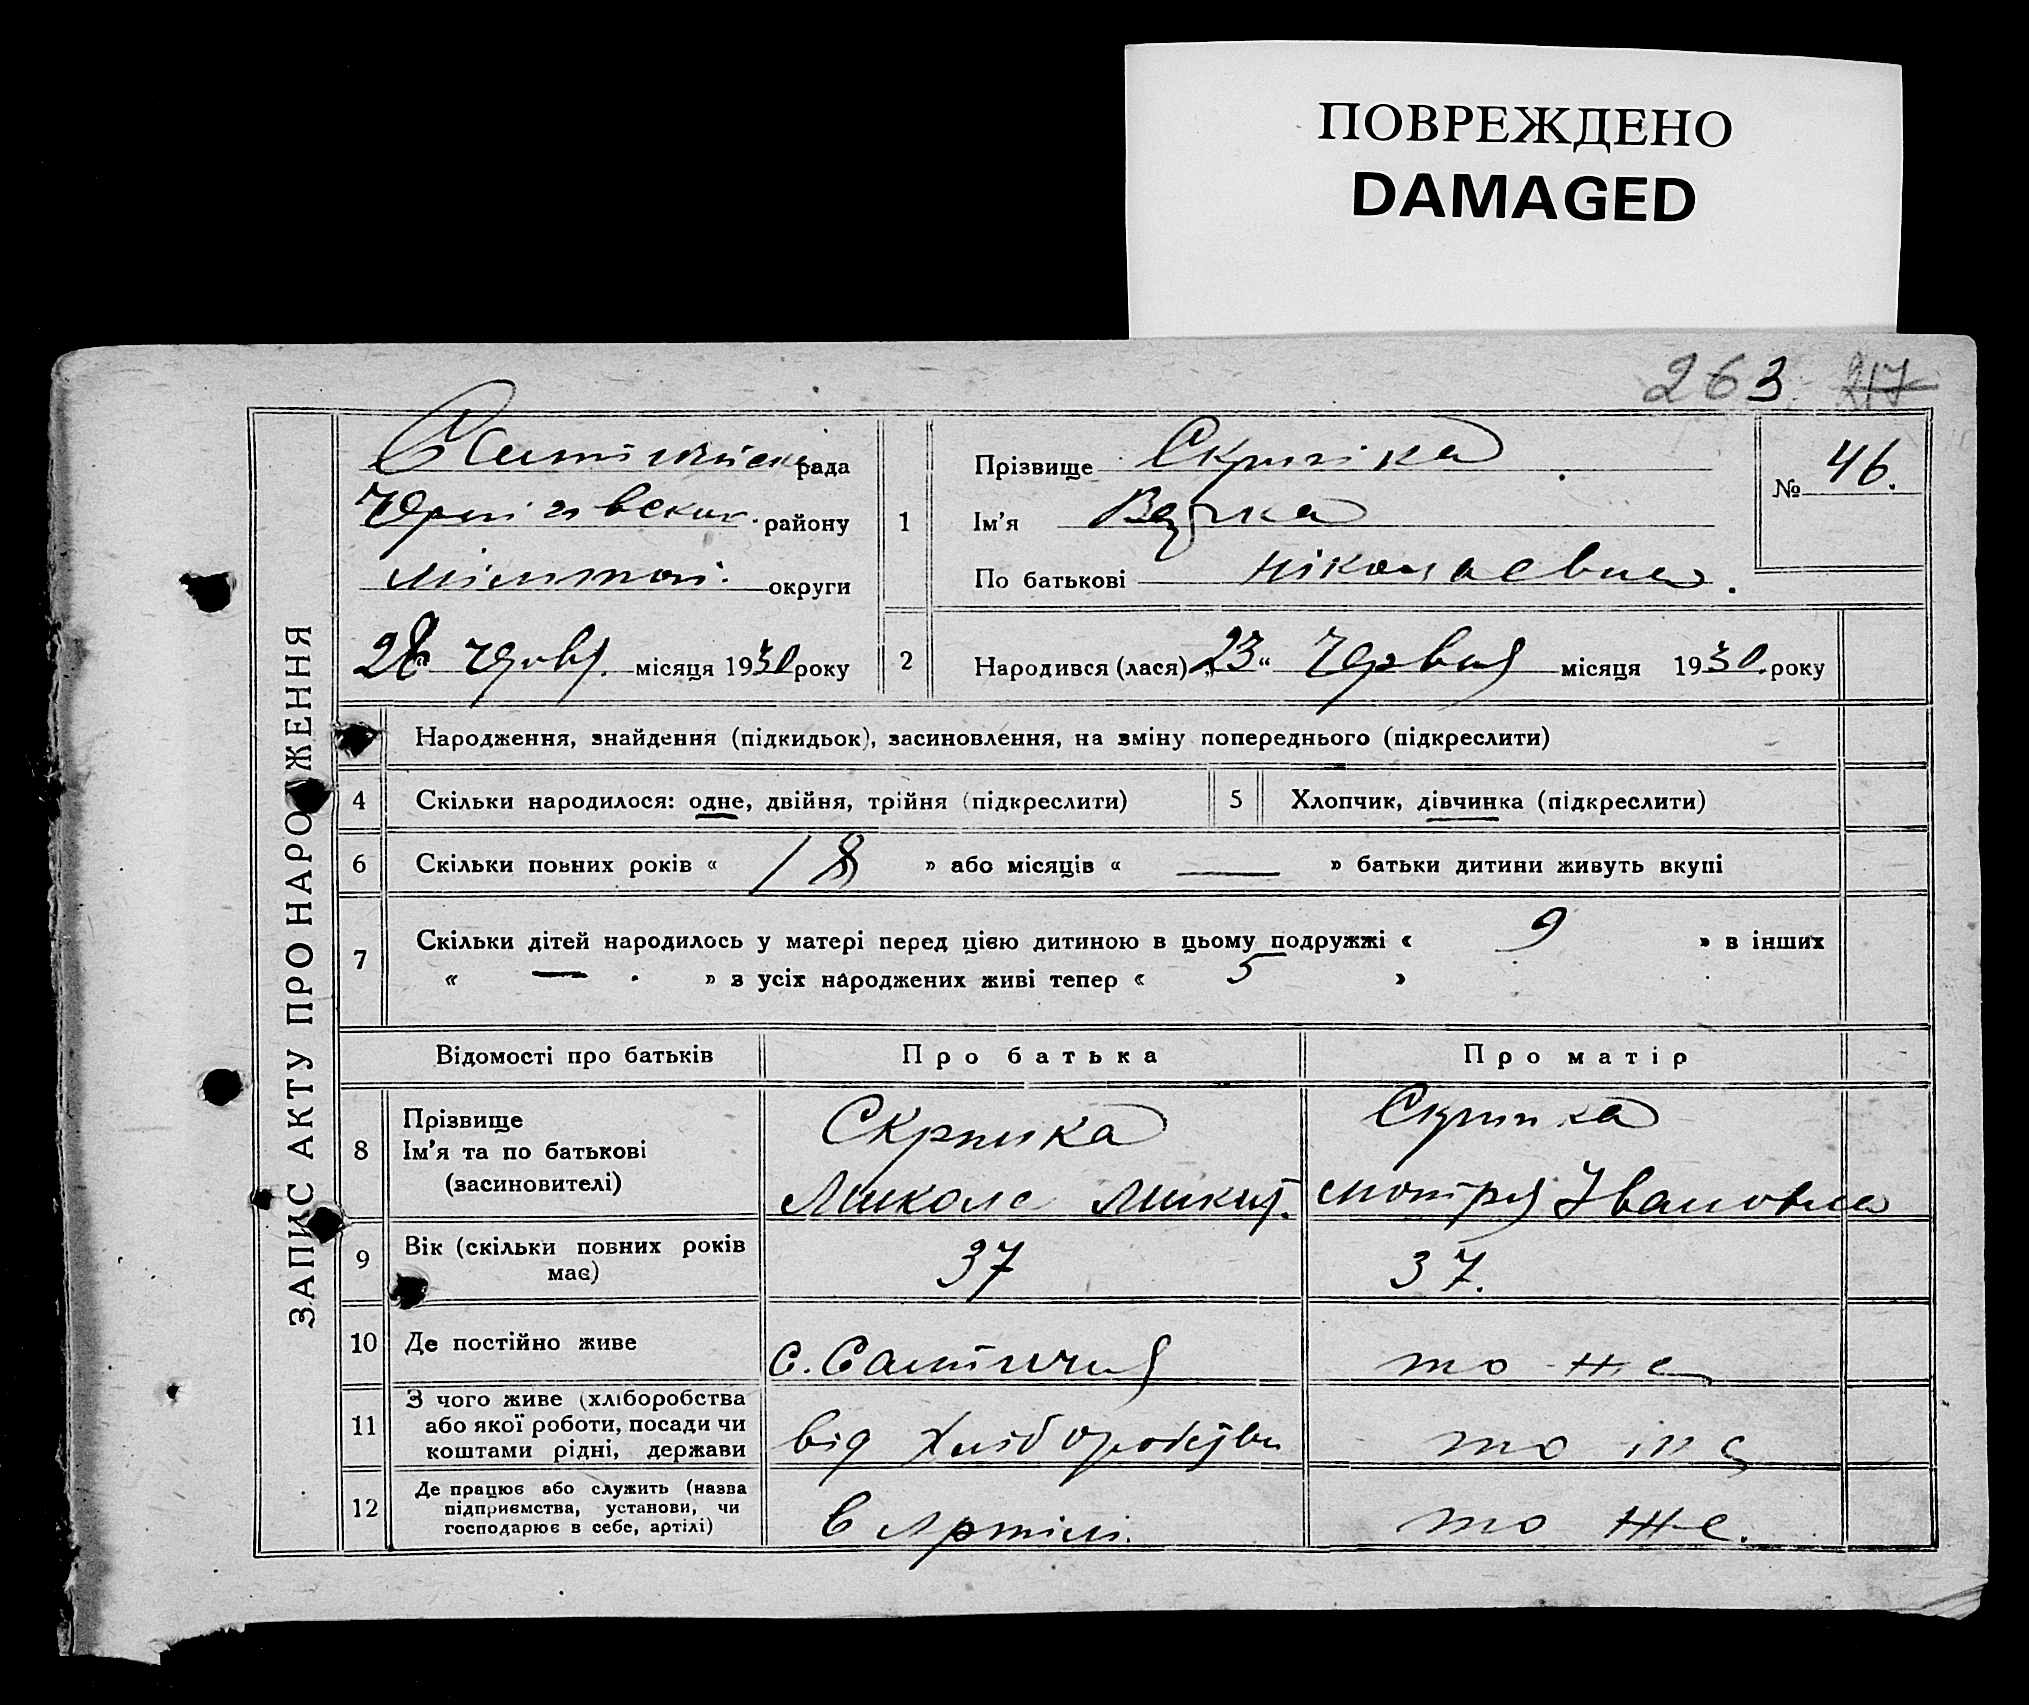 ПОВРЕЖДЕНО
DAMAGED
263 217
ЗАПИС АКТУ ПРО НАРОДЖЕННЯ
рада
району
округи
28 місяця 1930 року
1
Прізвище Скрипка
Ім’я
По батькові Ніколаевна.
№ 46.
2
Народився (лася) „23“ Червня місяця 1930 року
Народження, знайдення (підкидьок), засиновлення, на зміну попереднього (підкреслити)
4 Скільки народилося: одне, двійня, трійня (підкреслити)
5 Хлопчик, дівчинка (підкреслити)
6 Скільки повних років « 18 » або місяців « — » батьки дитини живуть вкупі
7 Скільки дітей народилось у матері перед цією дитиною в цьому подружжі « 9 » в інших
« — » з усіх народжених живі тепер « 5 »
Відомості про батьків Про батька Про матір
8 Прізвище
Ім’я та по батькові
(засиновителі)
Скрипка
Микола Микит.
Скрипка
Мотря Івановна
9 Вік (скільки повних років
має)
37
37.
10 Де постійно живе
с.
то же
11 З чого живе (хліборобства
або якої роботи, посади чи
коштами рідні, держави
від Хліборобства
то же
12 Де працює або служить (назва
підприємства, установи, чи
господарює в себе, артілі)
в Артілі.
то же.